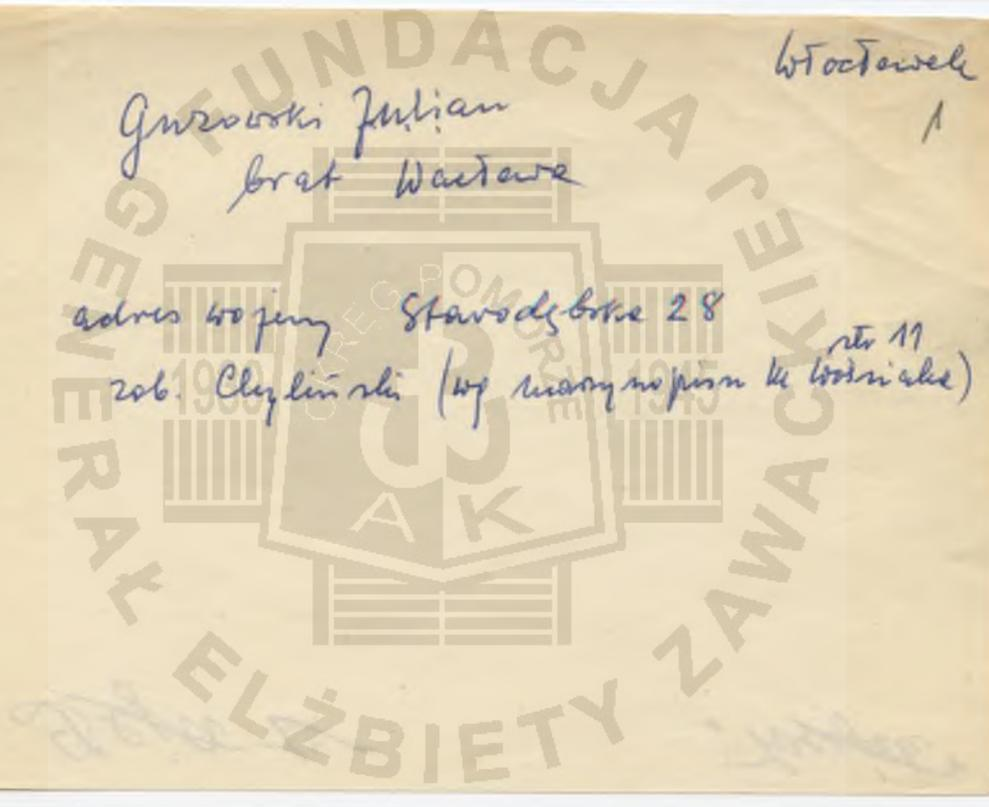 Włocławek
1
Guzowski Julian
brat Wacława
adres wojenny Starodębska 28
str 11
zob. Chyliński (wg maszynopisu K Woźniaka)
FUNDACJA GENERAŁ ELŻBIETY ZAWACKIEJ
OKRĘG POMORZE
1939 1945
AK